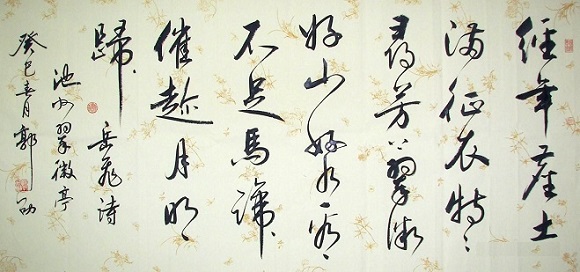 經年塵土
滿征衣特〻
尋芳上翠微
好山好水看
不足馬蹄
催趁月明
歸
岳飛詩
池州翠微亭
癸巳春月郭